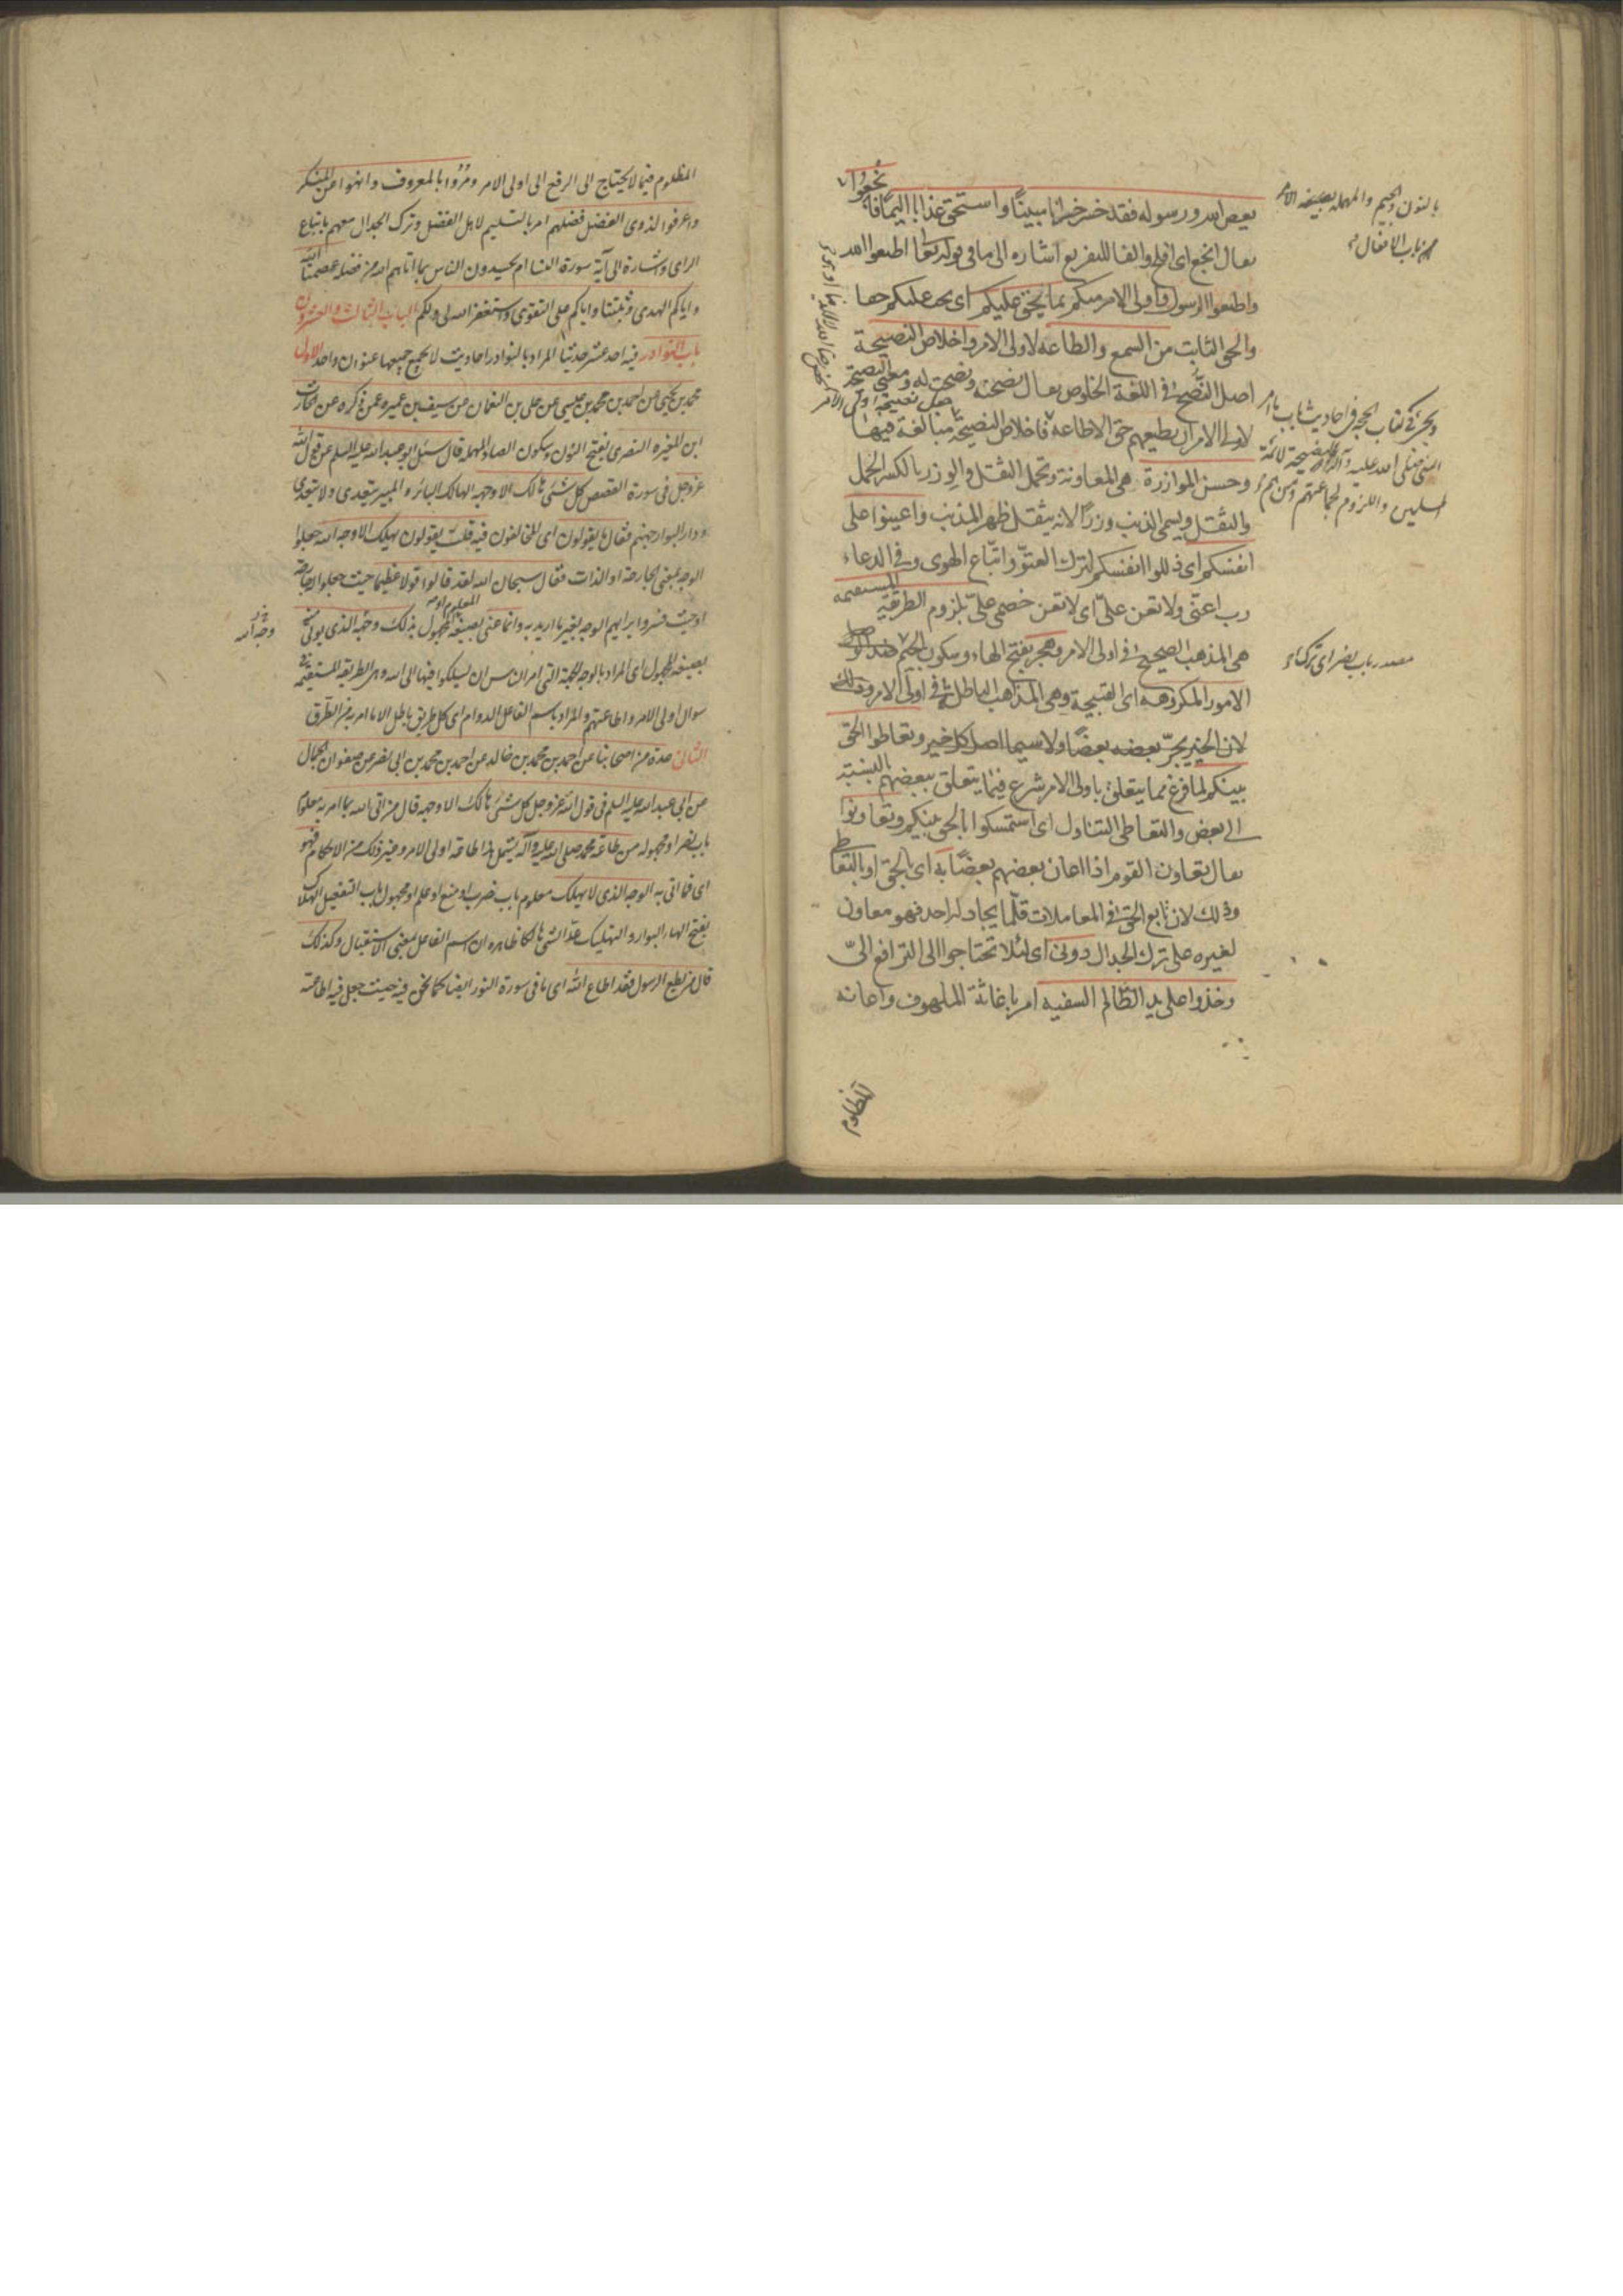 يعص الله ورسوله فقد خسر خسرانا مبينًا واستحق عذابا اليمًا فا
نجعوا
يقال انجع اى افلح والفا للتفريع اشارة الى ما فى قوله تعا اطيعوا الله
واطيعوا الرسول واولى الامر منكم بما يحق عليكم اى يجب عليكم حقا
والحق الثابت من السمع والطاعة لاولى الامر واخلاص النصيحة
اصل النصح فى اللغة الخلوص يقال نصحته ونصحت له ومعنى النصيحة
لاولى الامر ان يطيعهم حق الاطاعة فاخلاص النصيحة مبالغة فيها
وحسن الموازرة هى المعاونة وتحمل الثقل والوزر بالكسر الحمل
والثقل ويسمى الذنب وزرًا لانه يثقل ظهر المذنب واعينوا على
انفسكم اى ذللوا انفسكم لترك العتوّ واتّباع الهوى وفى الدعاء
رب اعنّى ولا تعن علىّ اى لا تعن خصمى علىّ بلزوم الطريقة المستقيمة
هى المذهب الصحيح فى اولى الامر وهجر بفتح الهاء وسكون الجيم ضد الوصل
الامور المكروهة اى القبيحة وهى المذاهب الباطلة فى اولى الامر وذلك
لان الخير يجرّ بعضه بعضًا ولا سيما اصل كل خير وتعاطوا الحق
بينكم لما فرغ مما يتعلق باولى الامر شرع فيما يتعلق ببعضهم بالنسبة
الى بعض والتعاطى التناول اى استمسكوا بالحق بينكم وتعاونوا
يقال تعاون القوم اذا اعان بعضهم بعضًا به اى بالحق او بالتعاطى
وذلك لان تابع الحق فى المعاملات قلّما يجادله احد فهو معاون
لغيره على ترك الجدال دونى اى لئلا تحتاجوا الى الترافع الىّ
وخذوا على يد الظالم السفيه امر باغاثة الملهوف واعانة
المظلوم
بالنون والجيم والمهملة بصيغة الامر
من باب الافعال
ويجئ فى كتاب الحجة فى احاديث باب ما امر
النبى صلى الله عليه وآله بالنصيحة لائمة
المسلمين واللزوم لجماعتهم ومن هم
مصدر باب نصر اى ترك
المظلوم فيما لا يحتاج الى الرفع الى اولى الامر ومُرُوا بالمعروف وانهوا عن المنكر
واعرفوا لذوى الفضل فضلهم امر بالتسليم لاهل الفضل وترك الجدال معهم باتباع
الراى واشارة الى آية سورة النساء ام يحسدون الناس بما اتاهم الله من فضله عصمنا الله
واياكم الهدى وثبتنا واياكم على التقوى واستغفر الله لى ولكم الباب الثالث والعشرون
باب النوادر فيه احد عشر حديثا المراد بالنوادر احاديث لا يجمع جميعها عنوان واحد الاول
محمد بن يحيى عن احمد بن محمد بن عيسى عن على بن النعمان عن سيف بن عميره عمن ذكره عن الحارث
ابن المغيره النصرى بفتح النون وسكون الصاد المهملة قال سئل ابو عبد الله عليه السلم عن قول الله
عز وجل فى سورة القصص كل شئ هالك الا وجهه الهالك البائر والمبير يتعدى ولا يتعدى
ودار البوار جهنم فقال ما يقولون اى المخالفون فيه قلت يقولون يهلك الا وجه الله جعلوا
الوجه بمعنى الجارحة او الذات فقال سبحان الله لقد قالوا قولا عظيما حيث جعلوا له جارحة
او حيث فسروا ابراهيم الوجه بغير ما اريد به وانما عنى بصيغة المعلوم او المجهول بذلك وجه الذى يوتى
بصيغة المجهول اى المراد بالوجه الجهة التى امر الناس ان يسلكوا فيها الى الله وهى الطريقة المستقيمة فى
سوال اولى الامر واطاعتهم والمراد باسم الفاعل الدوام اى كل طريق باطل الا ما امر به من الطرق
الثانى عدة من اصحابنا عن احمد بن محمد بن خالد عن احمد بن محمد بن ابى نصر عن صفوان الجمال
عن ابى عبد الله عليه السلم فى قول الله عز وجل كل شئ هالك الا وجهه قال من اتى الله بما امر به معلوم
باب نصر او مجهوله من طاعة محمد صلى الله عليه وآله يشتمل هذا طاعة اولى الامر وغير ذلك من الاحكام فهو
اى فما اتى به الوجه الذى لا يهلك معلوم باب ضرب او منع او علم او مجهول باب التفعيل الهلاك
بفتح الهاء البوار والتهليك عدّ الشئ هالكا ظاهره ان اسم الفاعل بمعنى الاستقبال وكذلك
قال من يطع الرسول فقد اطاع الله اى ما فى سورة النور ايضا كما نحن فيه حيث جعل فيه اطاعة
وجه الله